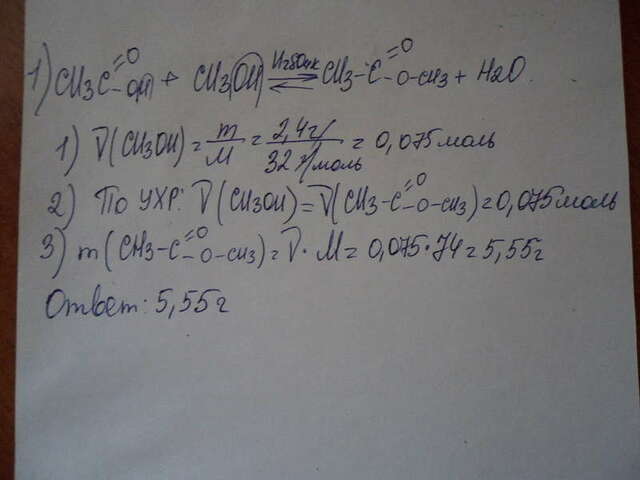 1) CH3C=O-OH + CH3OH ⇌ H2SO4 к CH3-C=O-O-CH3 + H2O.
1) ν(CH3OH) = m/M = 2,4г/32 г/моль = 0,075моль
2) По УХР: ν(CH3OH) = ν(CH3-C=O-O-CH3) = 0,075моль
3) m(CH3-C=O-O-CH3) = ν·M = 0,075·74 = 5,55г
Ответ: 5,55г